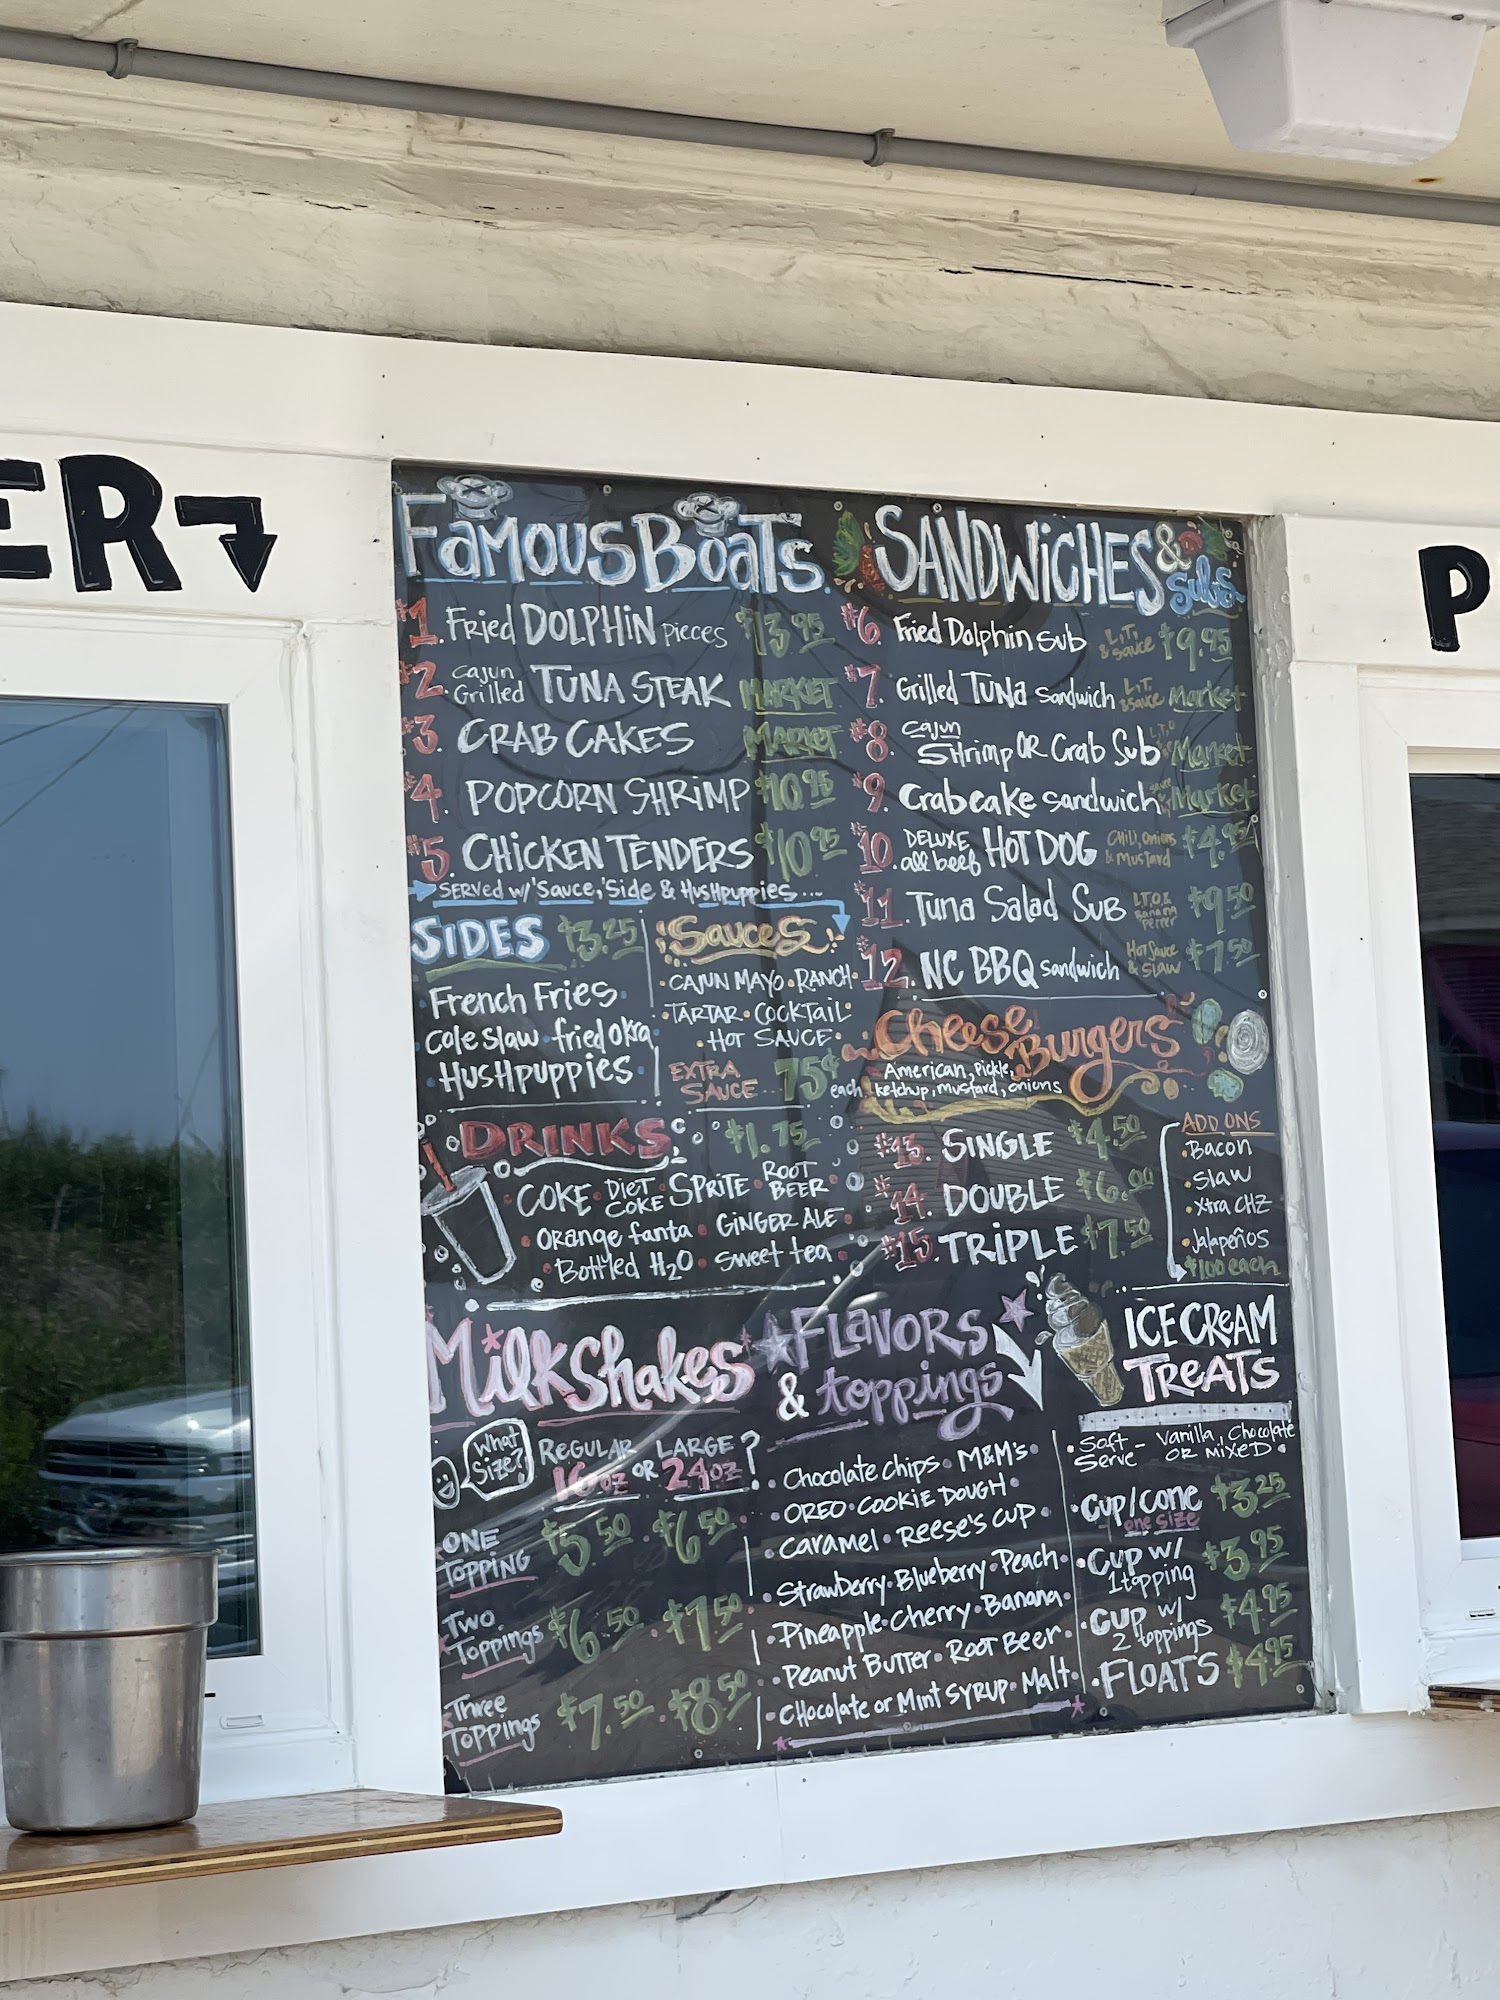 ER
P
FAMOUS BOATS
#1. Fried DOLPHIN PIECES $13.95
#2. Cajun Grilled TUNA STEAK MARKET
#3. CRAB CAKES MARKET
#4. POPCORN SHRIMP $10.95
#5. CHICKEN TENDERS $10.95
SERVED W/ 'Sauce,' Side & HUSHPUPPIES...
SIDES $3.25
French Fries
Cole Slaw • fried okra
HUSHPUPPIES
Sauces
CAJUN MAYO • RANCH
TARTAR • COCKTAIL
HOT SAUCE
EXTRA SAUCE 75¢ each
DRINKS $1.75
COKE • DIET COKE • SPRITE • ROOT BEER
ORANGE fanta • GINGER ALE
Bottled H2O • Sweet tea
SANDWICHES & Subs
#6. Fried Dolphin Sub L,T, & sauce $9.95
#7. Grilled TUNA Sandwich L,T, & sauce Market
#8. Cajun Shrimp OR Crab Sub L,T,O Market
#9. Crabcake Sandwich Market
#10. DELUXE all beef HOT DOG CHILI, onions & mustard $4.95
#11. Tuna Salad Sub L,T,O,& Banana Pepper $9.50
#12. NC BBQ sandwich Hot Sauce & SLAW $7.50
Cheese Burgers
American, pickle,
ketchup, mustard, onions
#13. SINGLE $4.50
#14. DOUBLE $6.00
#15. TRIPLE $7.50
ADD ONS
Bacon
Slaw
Xtra CHZ
Jalapeños
$1.00 each
Milkshakes
What Size?!
REGULAR 16oz OR LARGE 24oz?
ONE TOPPING $5.50 $6.50
Two Toppings $6.50 $7.50
Three TOPPings $7.50 $8.50
FLAVORS
& toppings
Chocolate chips • M&M's
OREO • COOKIE DOUGH
Caramel • REESE'S CUP
Strawberry • Blueberry • Peach
Pineapple • Cherry • Banana
Peanut Butter • Root Beer
CHocolate or Mint SYRUP • Malt
ICE CREAM
TREATS
Soft Serve - Vanilla, Chocolate OR MIXED
Cup/cone one size $3.25
CUP W/ 1 topping $3.95
CUP W/ 2 toppings $4.95
FLOATS $4.95